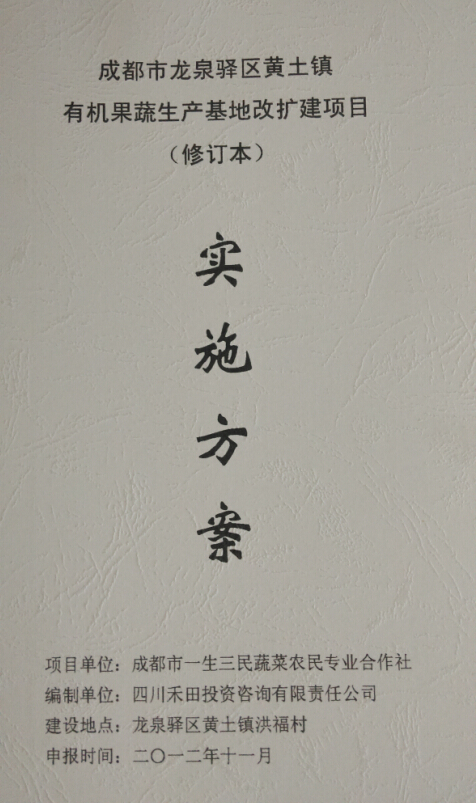 成都市龙泉驿区黄土镇
有机果蔬生产基地改扩建项目
（修订本）
实
施
方
案
项目单位：成都市一生三民蔬菜农民专业合作社
编制单位：四川禾田投资咨询有限责任公司
建设地点：龙泉驿区黄土镇洪福村
申报时间：二〇一二年十一月